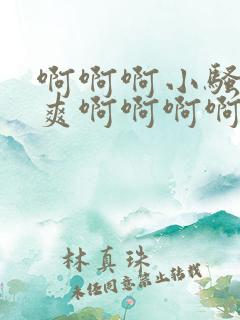 啊啊啊小骚
爽啊啊啊啊
林真珠
未经同意禁止转载